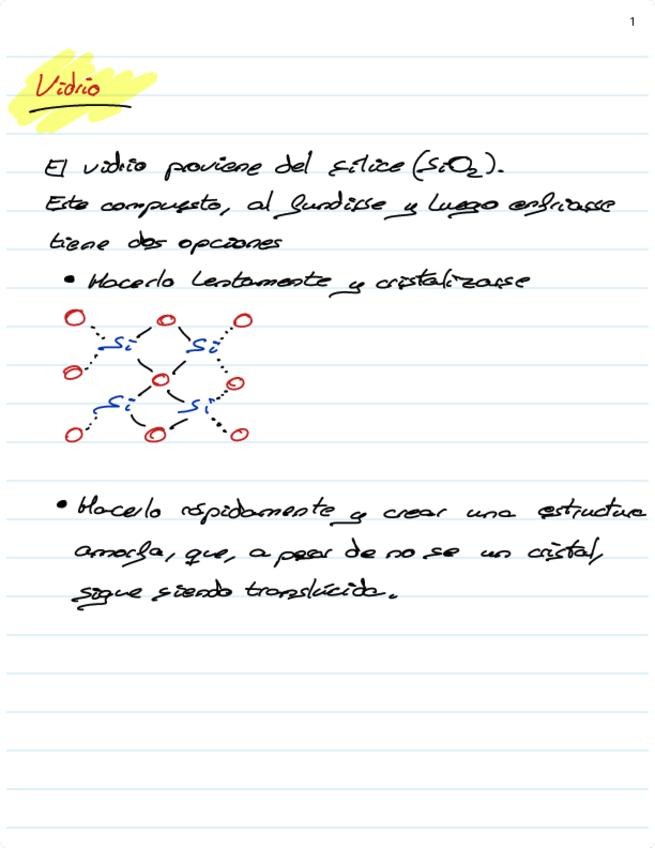 1
Vidrio
El vidrio proviene del sílice (SiO2).
Este compuesto, al fundirse y luego enfriarse
tiene dos opciones
• Hacerlo lentamente y cristalizarse
O O O
Si Si
O O O
Si Si
O O O
• Hacerlo rápidamente y crear una estructura
amorfa, que, a pesar de no se un cristal,
sigue siendo translúcida.